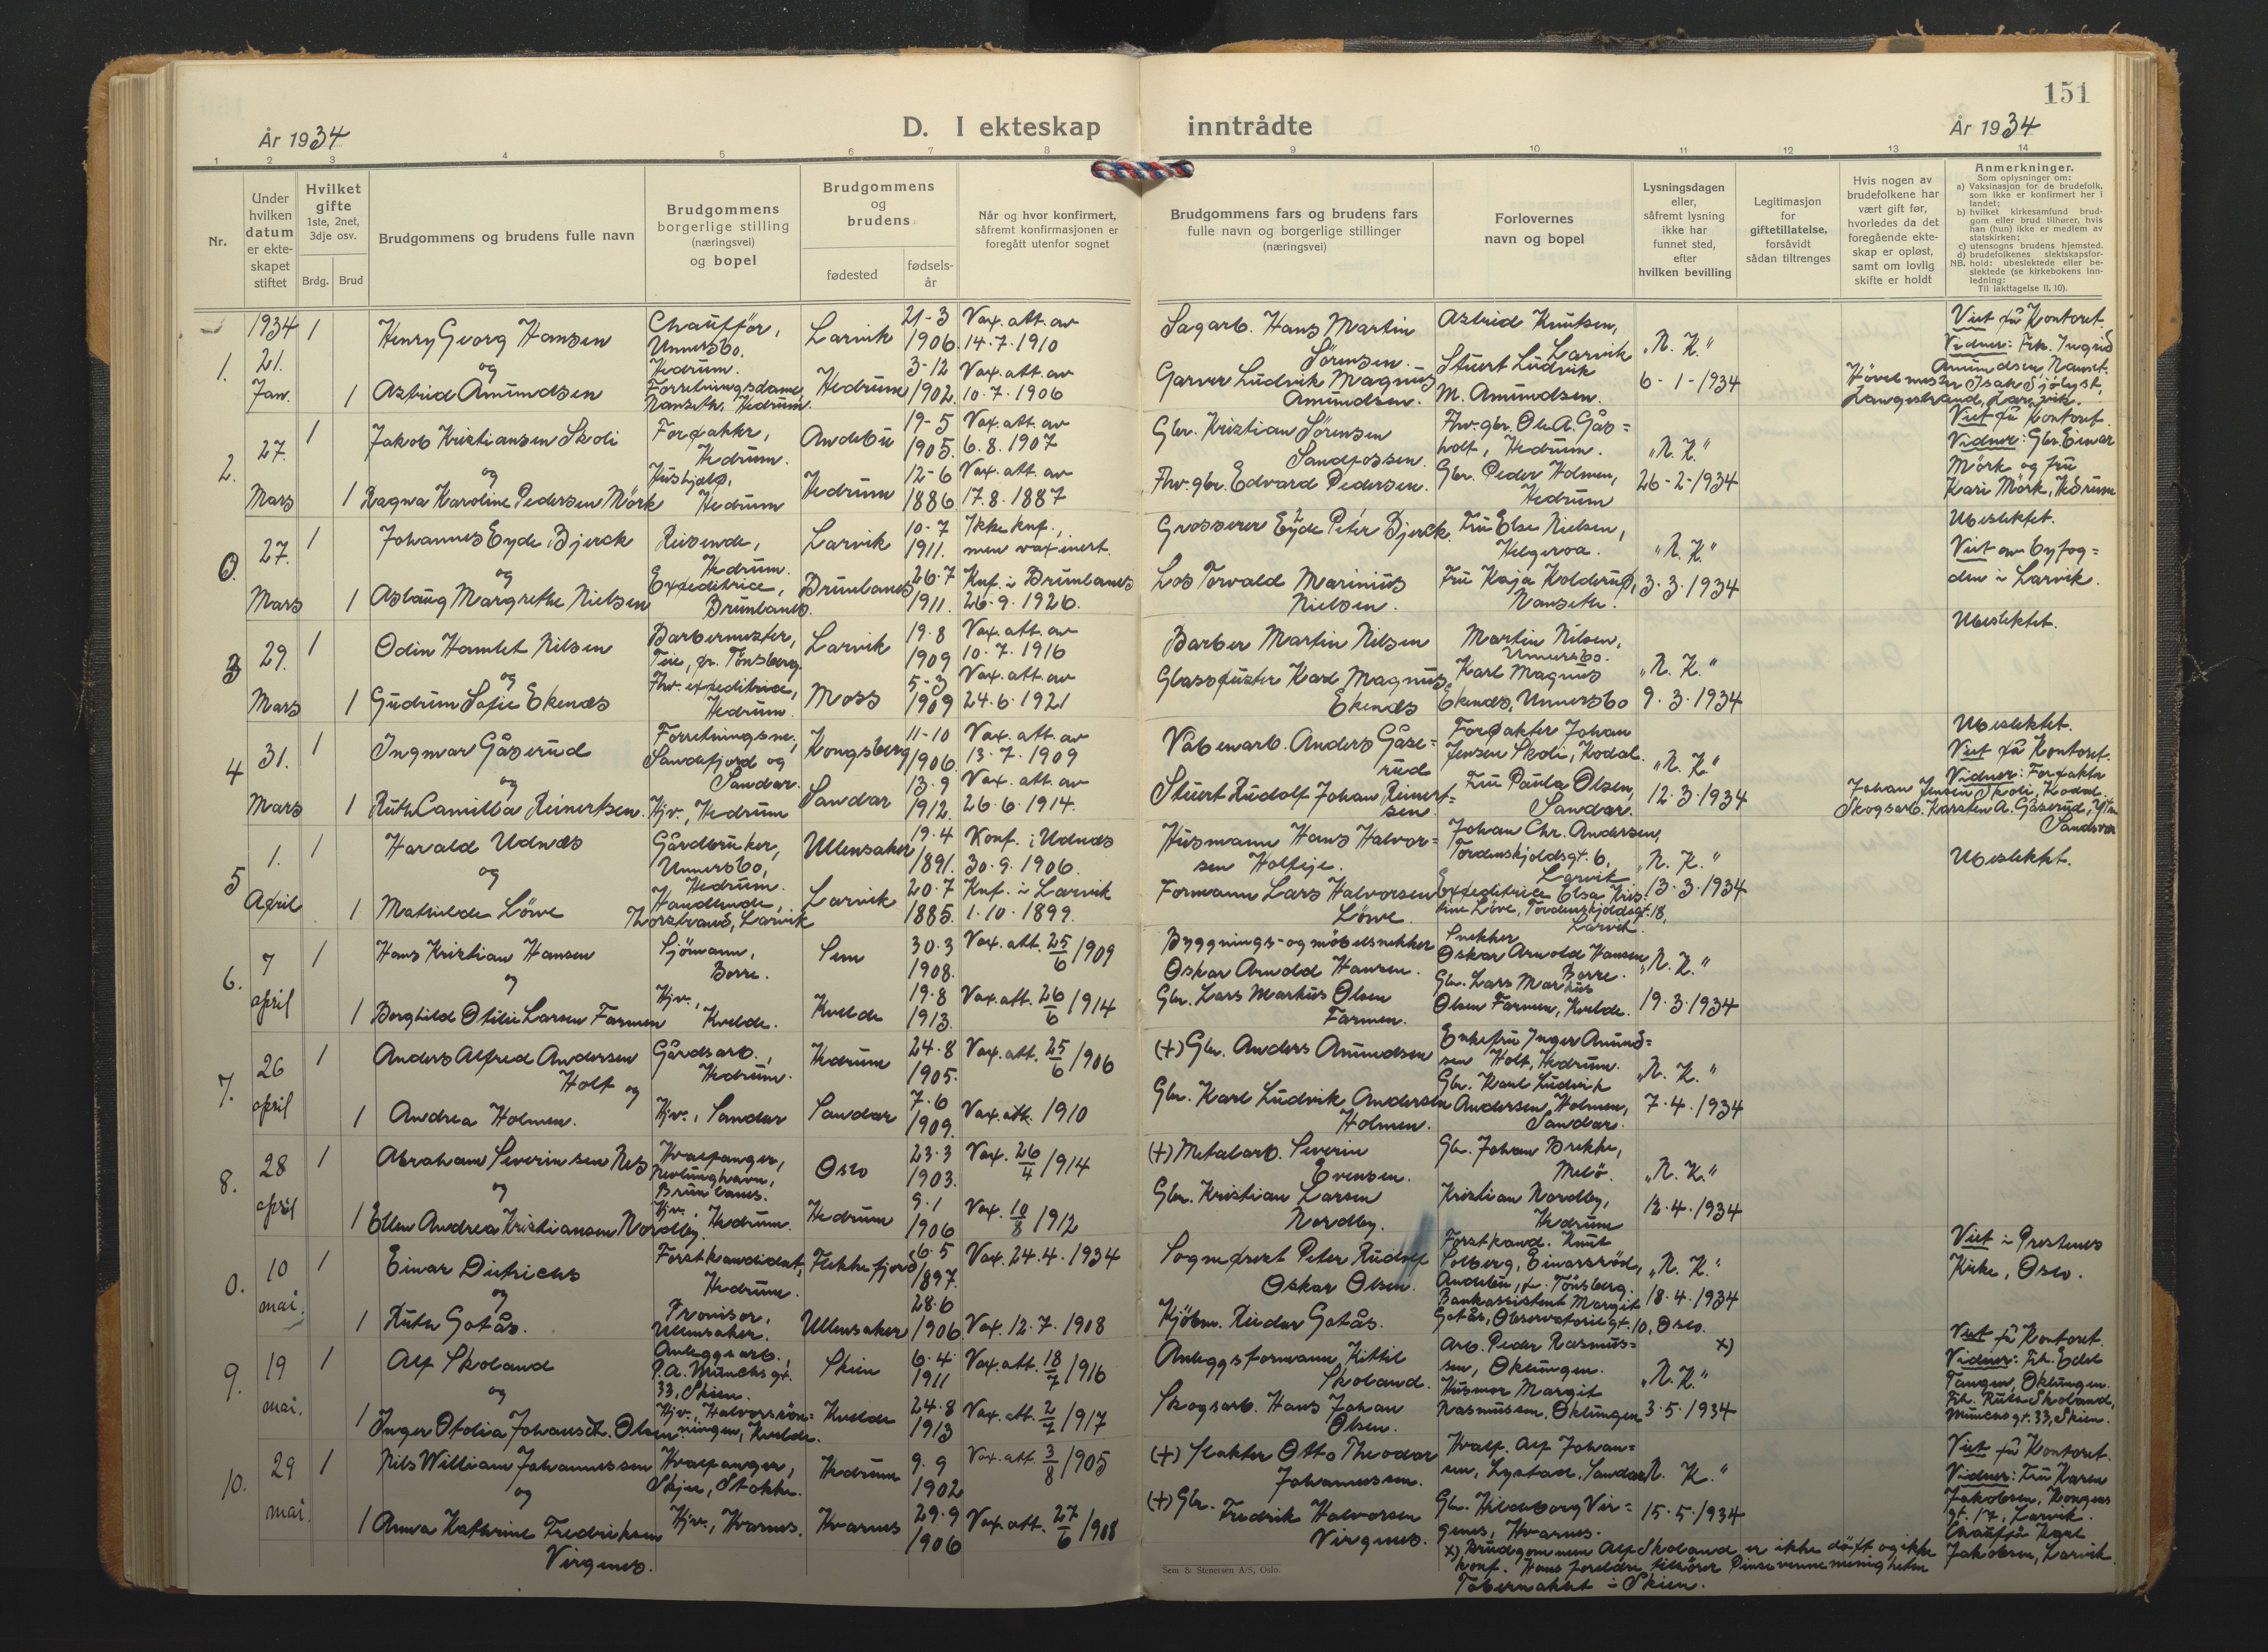 151
År 1934
D. I ekteskap inntrådte
År 1934
1 2 3 4 5 6 7 8 9 10 11 12 13 14
Nr.
Under hvilken datum er ekteskapet stiftet
Hvilket gifte
1ste, 2net, 3dje osv.
Brdg. Brud
Brudgommens og brudens fulle navn
Brudgommens borgerlige stilling (næringsvei) og bopel
Brudgommens og brudens
fødested
fødselsår
Når og hvor konfirmert, såfremt konfirmasjonen er foregått utenfor sognet
Brudgommens fars og brudens fars fulle navn og borgerlige stillinger (næringsvei)
Forlovernes navn og bopel
Lysningsdagen eller, såfremt lysning ikke har funnet sted, efter hvilken bevilling
Legitimasjon for giftetillatelse, forsåvidt sådan tiltrenges
Hvis nogen av brudefolkene har vært gift før, hvorledes da det foregående ekteskap er opløst, samt om lovlig skifte er holdt
Anmerkninger.
Som oplysninger om:
a) Vaksinasjon for de brudefolk, som ikke er konfirmert her i landet;
b) hvilket kirkesamfund brudgom eller brud tilhører, hvis han (hun) ikke er medlem av statskirken;
c) utensogns brudens hjemsted.
d) brudefolkenes slektskapsforhold: ubeslektede eller beslektede (se kirkebokens innledning:
NB.
Til iakttagelse II. 10).
1. 1934 21. Jan. 1
Henry Georg Hansen
og
1 Astrid Amundsen
Chauffør, Unnersbo. Hedrum.
Forretningsdame, Nanseth, Hedrum.
Larvik 21-3 1906. Vax. att. av 14.7.1910
Hedrum 3-12 1902. Vax. att. av 10.7.1906
Sagarb. Hans Martin Sörensen.
Garver Ludvik Magnus Amundsen.
Astrid Knutsen, Larvik
Stuert Ludvik M. Amundsen.
"N. K." 6-1-1934
Viet på Kontoret.
Vidner: Frk. Ingrid Amundsen Nanset.
Isak Sjölyst, Langestrand, Larvik.
2. 27. Mars 1
Jakob Kristiansen Skoli
og
1 Ragna Karoline Pedersen Mörk
Forpakter, Hedrum.
Hushjelp, Hedrum
Andebu 19-5 1905. Vax. att. av 6.8.1907
Hedrum 12-6 1886 Vax. att. av 17.8.1887
Gbr. Kristian Sörensen Sandfossen.
Fhv. gbr. Edvard Pedersen.
Fhv. gbr. Ole A. Gåsholt, Hedrum.
Gbr. Peder Holmen, Hedrum
"N. K." 26-2-1934
Viet på Kontoret.
Vidner: Gbr. Einar Mörk og fru Kari Mörk, Hedrum
Ubeslektet.
0. 27. Mars 1
Johannes Eyde Bjerck
og
1 Aslaug Margrethe Nielsen
Reisende, Hedrum.
Expeditrice, Brunlanes.
Larvik 10-7 1911. Ikke knf., men vaxinert.
Brunlanes 26.7 1911. Knf. i Brunlanes 26.9.1926.
Grosserer Eyde Peter Bjerck.
Los Torvald Marinius Nielsen.
Fru Else Nielsen, Helgeroa.
Fru Kaja Kolderup, Nanseth.
"N. K." 3.3.1934
Viet av byfogden i Larvik.
Ubeslektet.
3 29. Mars 1
Odin Hamlet Nilsen
og
1 Gudrun Sofie Ekenæs
Barbermester, Teie, pr. Tønsberg.
Fhv. expeditrice, Hedrum.
Larvik 19.8 1909 Vax. att. av 10.7.1916
Moss 5-3 1909 Vax. att. av 24.6.1921
Barber Martin Nilsen
Glasspuster Karl Magnus Ekenæs
Martin Nilsen, Unnersbo.
Karl Magnus Ekenæs, Unnersbo
"N. K." 9.3.1934
Ubeslektet.
4 31. Mars 1
Ingmar Gåserud
og
1 Ruth Camilla Reinertsen.
Forretningsm., Sandefjord og Sandar.
Hjv., Hedrum
Kongsberg 11-10 1906. Vax. att. av 13.7.1909
Sandar 13.9 1912. Vax. att. av 26.6.1914.
Våbenarb. Anders Gåserud
Stuert Rudolf Johan Reinertsen.
Forpakter Johan Jensen Skoli, Kodal.
Fru Paula Olsen, Sandar.
"N. K." 12.3.1934
Viet på Kontoret.
Vidner: Forpakter Johan Jensen Skoli, Kodal.
Skogsarb. Karsten A. Gåserud, Ytre Sandsvær
5 1. April 1
Harald Udnæs
og
1 Mathilde Löwe
Gårdbruker, Unnersbo, Hedrum.
Handlende, Thorstrand, Larvik
Ullensaker 19.4 1891. Konf. i Udnæs 30.9.1906.
Larvik 20.7 1885. Knf. i Larvik 1.10.1899.
Husmann Hans Halvorsen Holteje.
Formann Lars Halvorsen Löwe.
Johan Chr. Andersen, Tordenskjoldsgt. 6, Larvik
Expeditrice Elsa Kristine Löve, Tordenskjoldsgt. 18, Larvik.
"N. K." 13.3.1934
Ubeslektet.
6. 7 april 1
Hans Kristian Hansen
og
1 Borghild Otilie Larsen Farmen
Sjömann, Borre.
Hjv., Kvelde.
Sem 30.3 1908. Vax. att. 25/6 1909
Kvelde 19.8 1913. Vax. att. 26/6 1914
Byggnings- og möbelsnekker Oskar Arnold Hansen.
Gbr. Lars Markus Olsen Farmen.
Snekker Oskar Arnold Hansen, Borre.
Gbr. Lars Markus Olsen Farmen, Kvelde.
"N. K." 19.3.1934
7. 26 april 1
Anders Alfred Andersen Holt og
1 Andrea Holmen.
Gårdsarb., Hedrum.
Hjv., Sandar
Hedrum 24.8 1905. Vax. att. 25/6 1906
Sandar 7.6 1909. Vax. att. 1910
(+) Gbr. Anders Amundsen
Gbr. Karl Ludvik Andersen Holmen.
Enkefru Inger Amundsen Holt, Hedrum.
Gbr. Karl Ludvik Andersen Holmen, Sandar.
"N. K." 7.4.1934
8. 28 april 1
Abraham Severinsen Nes
og
1 Ellen Andrea Kristiansen Nordby.
Hvalfanger, Nevlunghavn, Brunlanes.
Hjv., Hedrum.
Oslo 23.3 1903. Vax. 26/4 1914
Hedrum 9.1 1906 Vax. 10/8 1912
(+) Metalarb. Severin Evensen.
Gbr. Kristian Larsen Nordby.
Gbr. Johan Brekke, Melö.
Kristian Nordby, Hedrum
"N. K." 12.4.1934
0. 10 mai. 1
Einar Dietrichs
og
1 Ruth Gotås.
Forstkandidat, Hedrum.
Provisor, Ullensaker.
Flekkefjord 6.5 1897. Vax. 24.4.1934
Ullensaker 28.6 1906 Vax. 12.7.1908
Sogneprest Peter Rudolf Oskar Olsen.
Kjöbm. Reidar Gotås.
Forstkand. Knut Solberg, Einarsröd, Andebu, pr. Tönsberg.
Bankassistent Margit Gotås, Observatoriegt. 10, Oslo.
"N. K." 18.4.1934
Viet i Prestenes Kirke, Oslo.
9. 19 mai. 1
Alf Skoland
og
1 Inger Otolia Johansdt. Olsen
Anleggsarb., P.A. Munchs gt. 33, Skien.
Hjv., Halvorsrönningen, Kvelde.
Skien 6.4 1911 Vax. att. 18/7 1916
Kvelde 24.8 1913 Vax. att. 2/7 1917
Anleggsformann Kittil Skoland.
Skogsarb. Hans Johan Olsen.
Arb. Peder Rasmussen, Oklungen.
Husmor Margit Rasmussen, Oklungen
"N. K." 3.5.1934
x)
Viet på Kontoret.
Vidner: Frk. Edel Tangen, Oklungen.
Frk. Ruth Skoland, Munchs gt. 33, Skien.
10. 29 mai. 1
Nils William Johannessen
og
1 Anna Kathrine Fredriksen Virgenes.
Hvalfanger, Skjee, Stokke.
Hjv., Hvarnes.
Hedrum 9.9 1902 Vax. att. 3/8 1905
Hvarnes 29.9 1906 Vax. att. 27/6 1908
(+) Slakter Otto Theodor Johannessen.
(+) Gbr. Fredrik Halvorsen Virgenes.
Hvalf. Alf Johansen, Lystad, Sandar
Gbr. Hildeborg Virgenes, Hvarnes.
"N. K." 15.5.1934
Viet på Kontoret.
Vidner: Fru Karen Jakobsen, Kongens gt. 17, Larvik.
Chauffør Karl Jakobsen, Larvik.
x) Brudgommen Alf Skoland er ikke döpt og ikke
konf. Hans foreldre tilhörer Pinsevennemenigheten
Tabernaklet i Skien.
Sem & Stenersen A/S, Oslo.